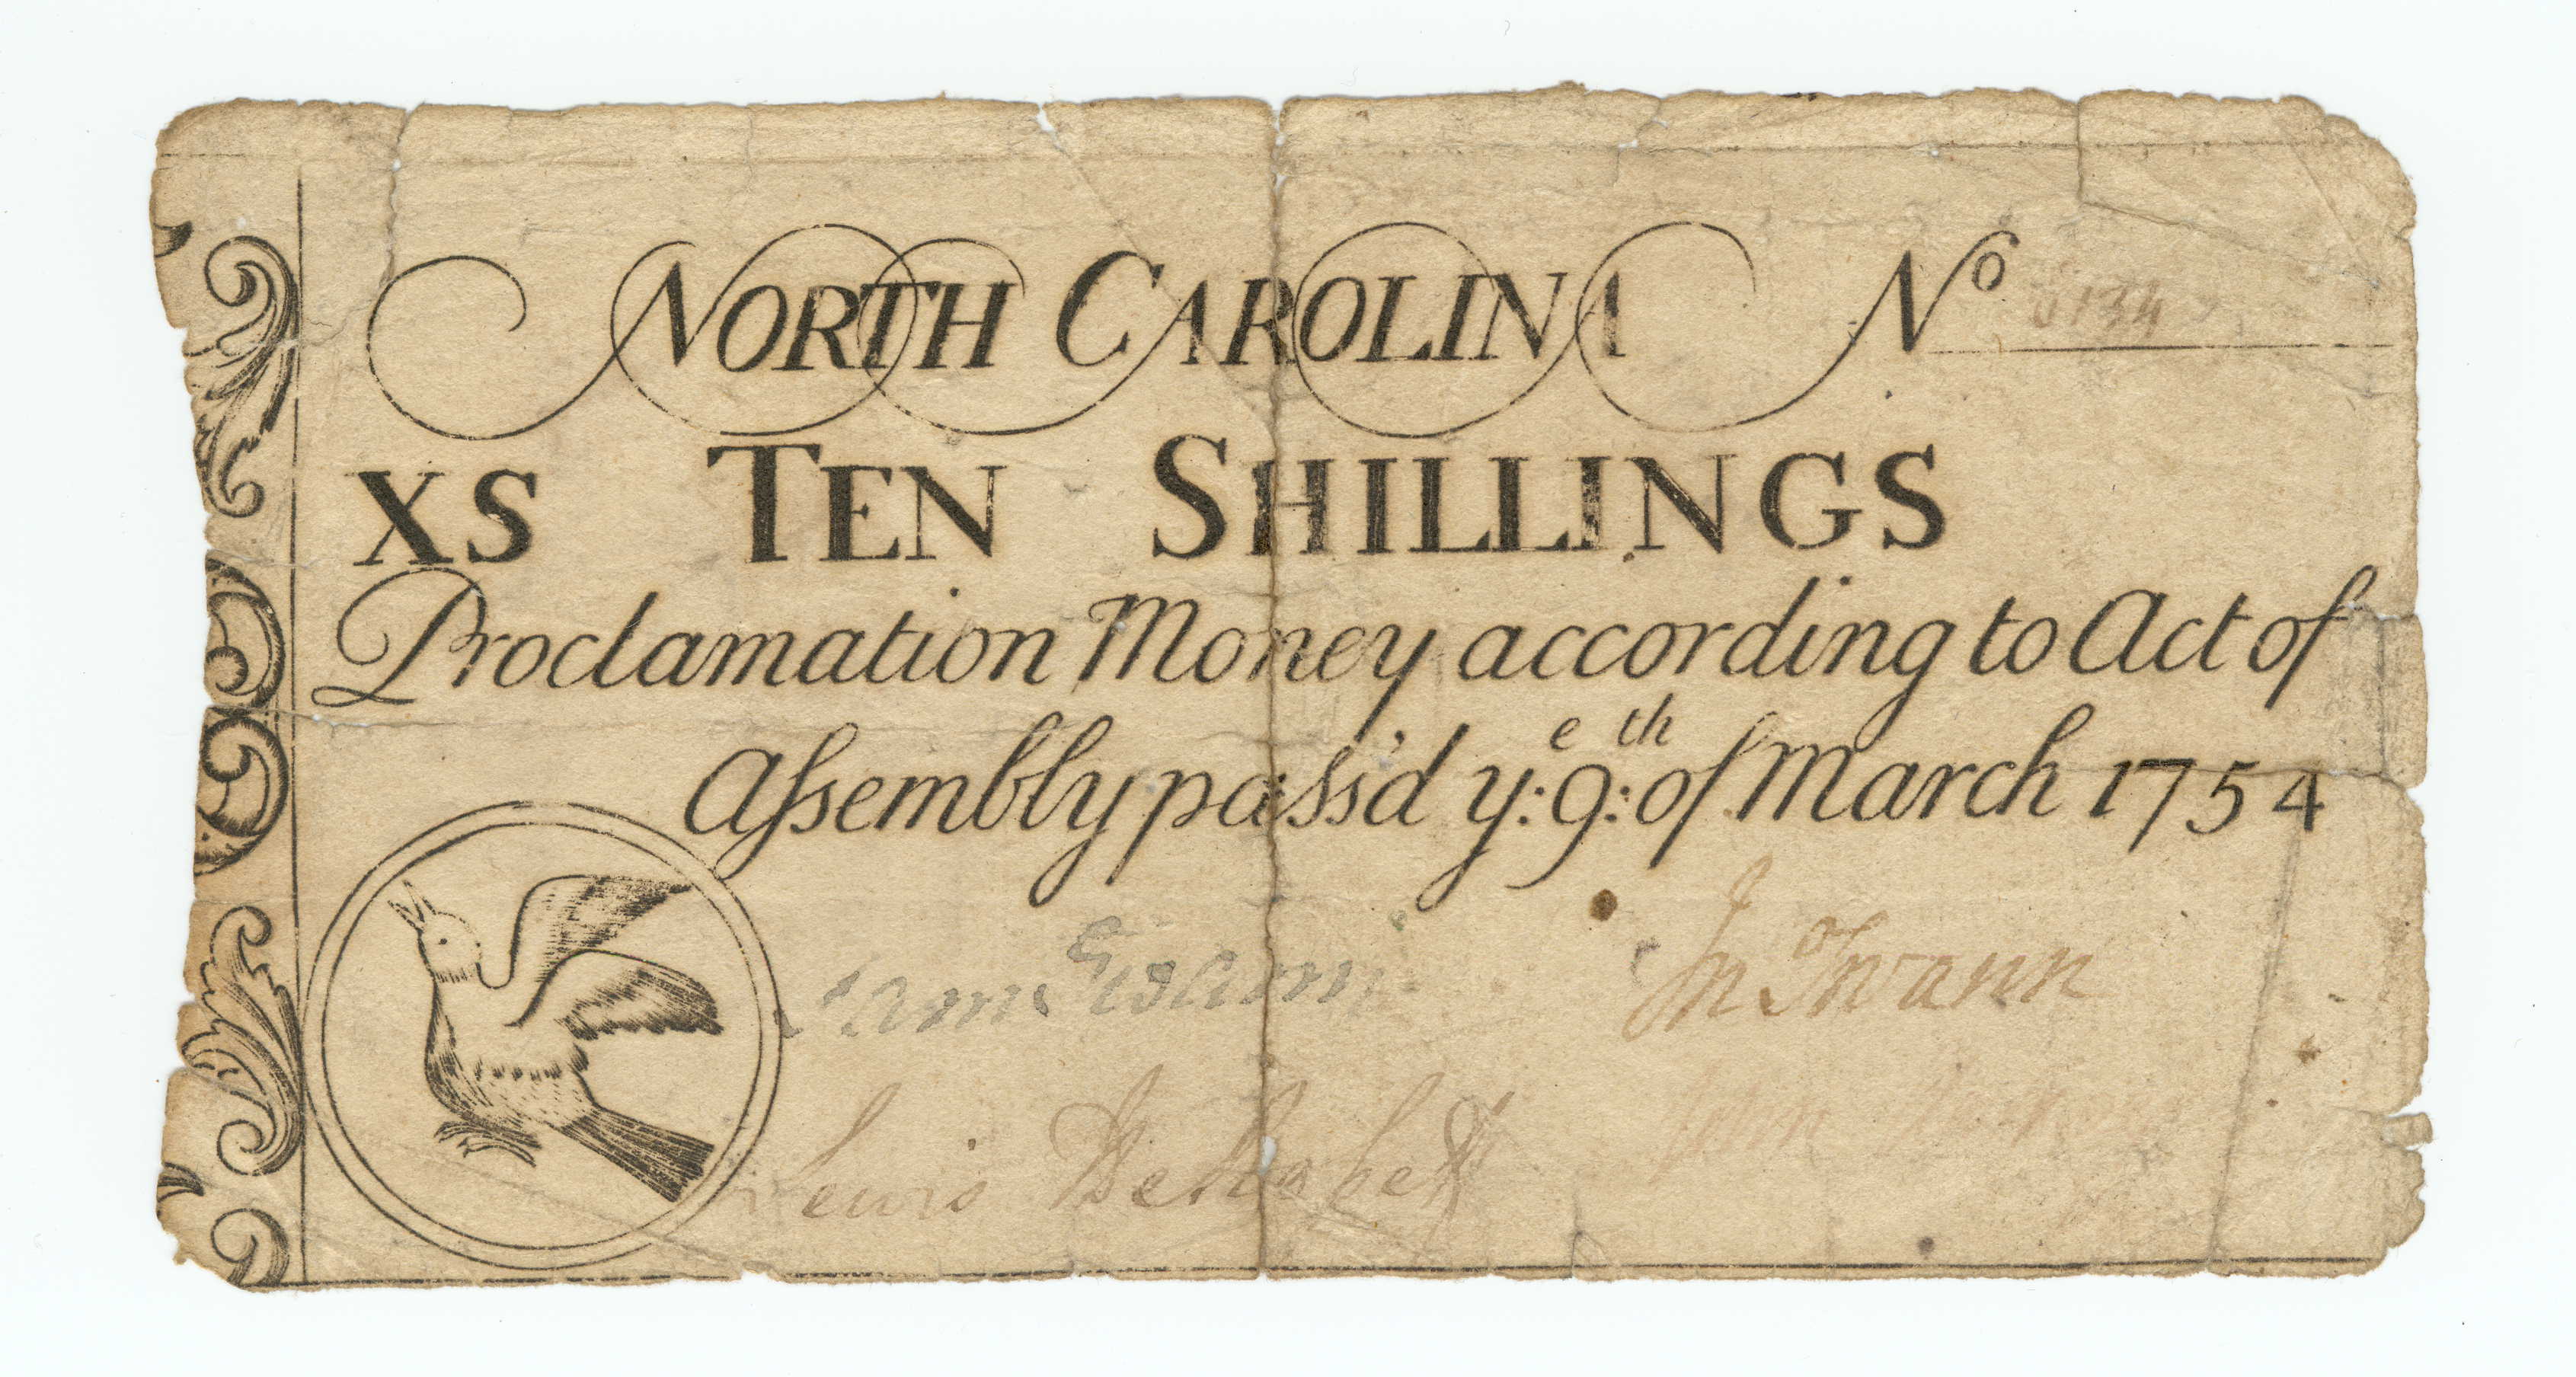 NORTH CAROLINA No 5134
XS TEN SHILLINGS
Proclamation Money according to Act of
Aſsembly paſs'd ye: 9th: of March 1754
Jn Swann
Lewis DeRosset
John